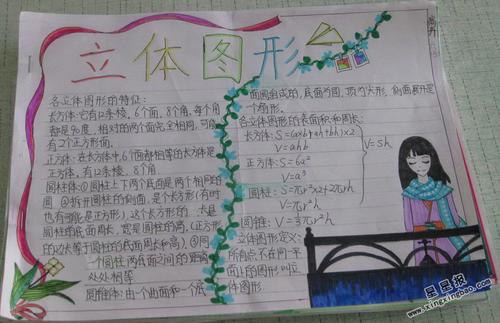 立体图形
各立体图形的特征:
长方体:它有12条棱,6个面,8个角,每个角
都是90度,相对的两个面完全相同,可能
有2个正方形面.
正方体:在长方体中,6个面都相等的长方体是
正方体,有12条棱,8个角
圆柱体:①圆柱上下两个底面是两个相同的
圆 ②拆开圆柱的侧面,是个长方形(有时
也有可能是正方形),这个长方形的 长是
圆柱的底面周长,宽是圆柱的高,(正方形
的边长等于圆柱的底面周长和高),③同
一个圆柱两底面之间的距离
处处相等
圆锥体:由一个曲面和一个底
面圆组成的,底面为圆,顶为尖形,侧面展开是
一个扇形.
各立体图形的表面积和周长:
长方体:S=(axb+ah+bh)x2
V=abh
正方体:S=6a²
V=a³
圆柱:S=πr²x2+2πrh
V=πr²h
V=Sh
圆锥:V=⅓πr²h
立体图形定义:
所有点不在同一平
面上的图形叫立
体图形
星星报
www.xingxingbao.com